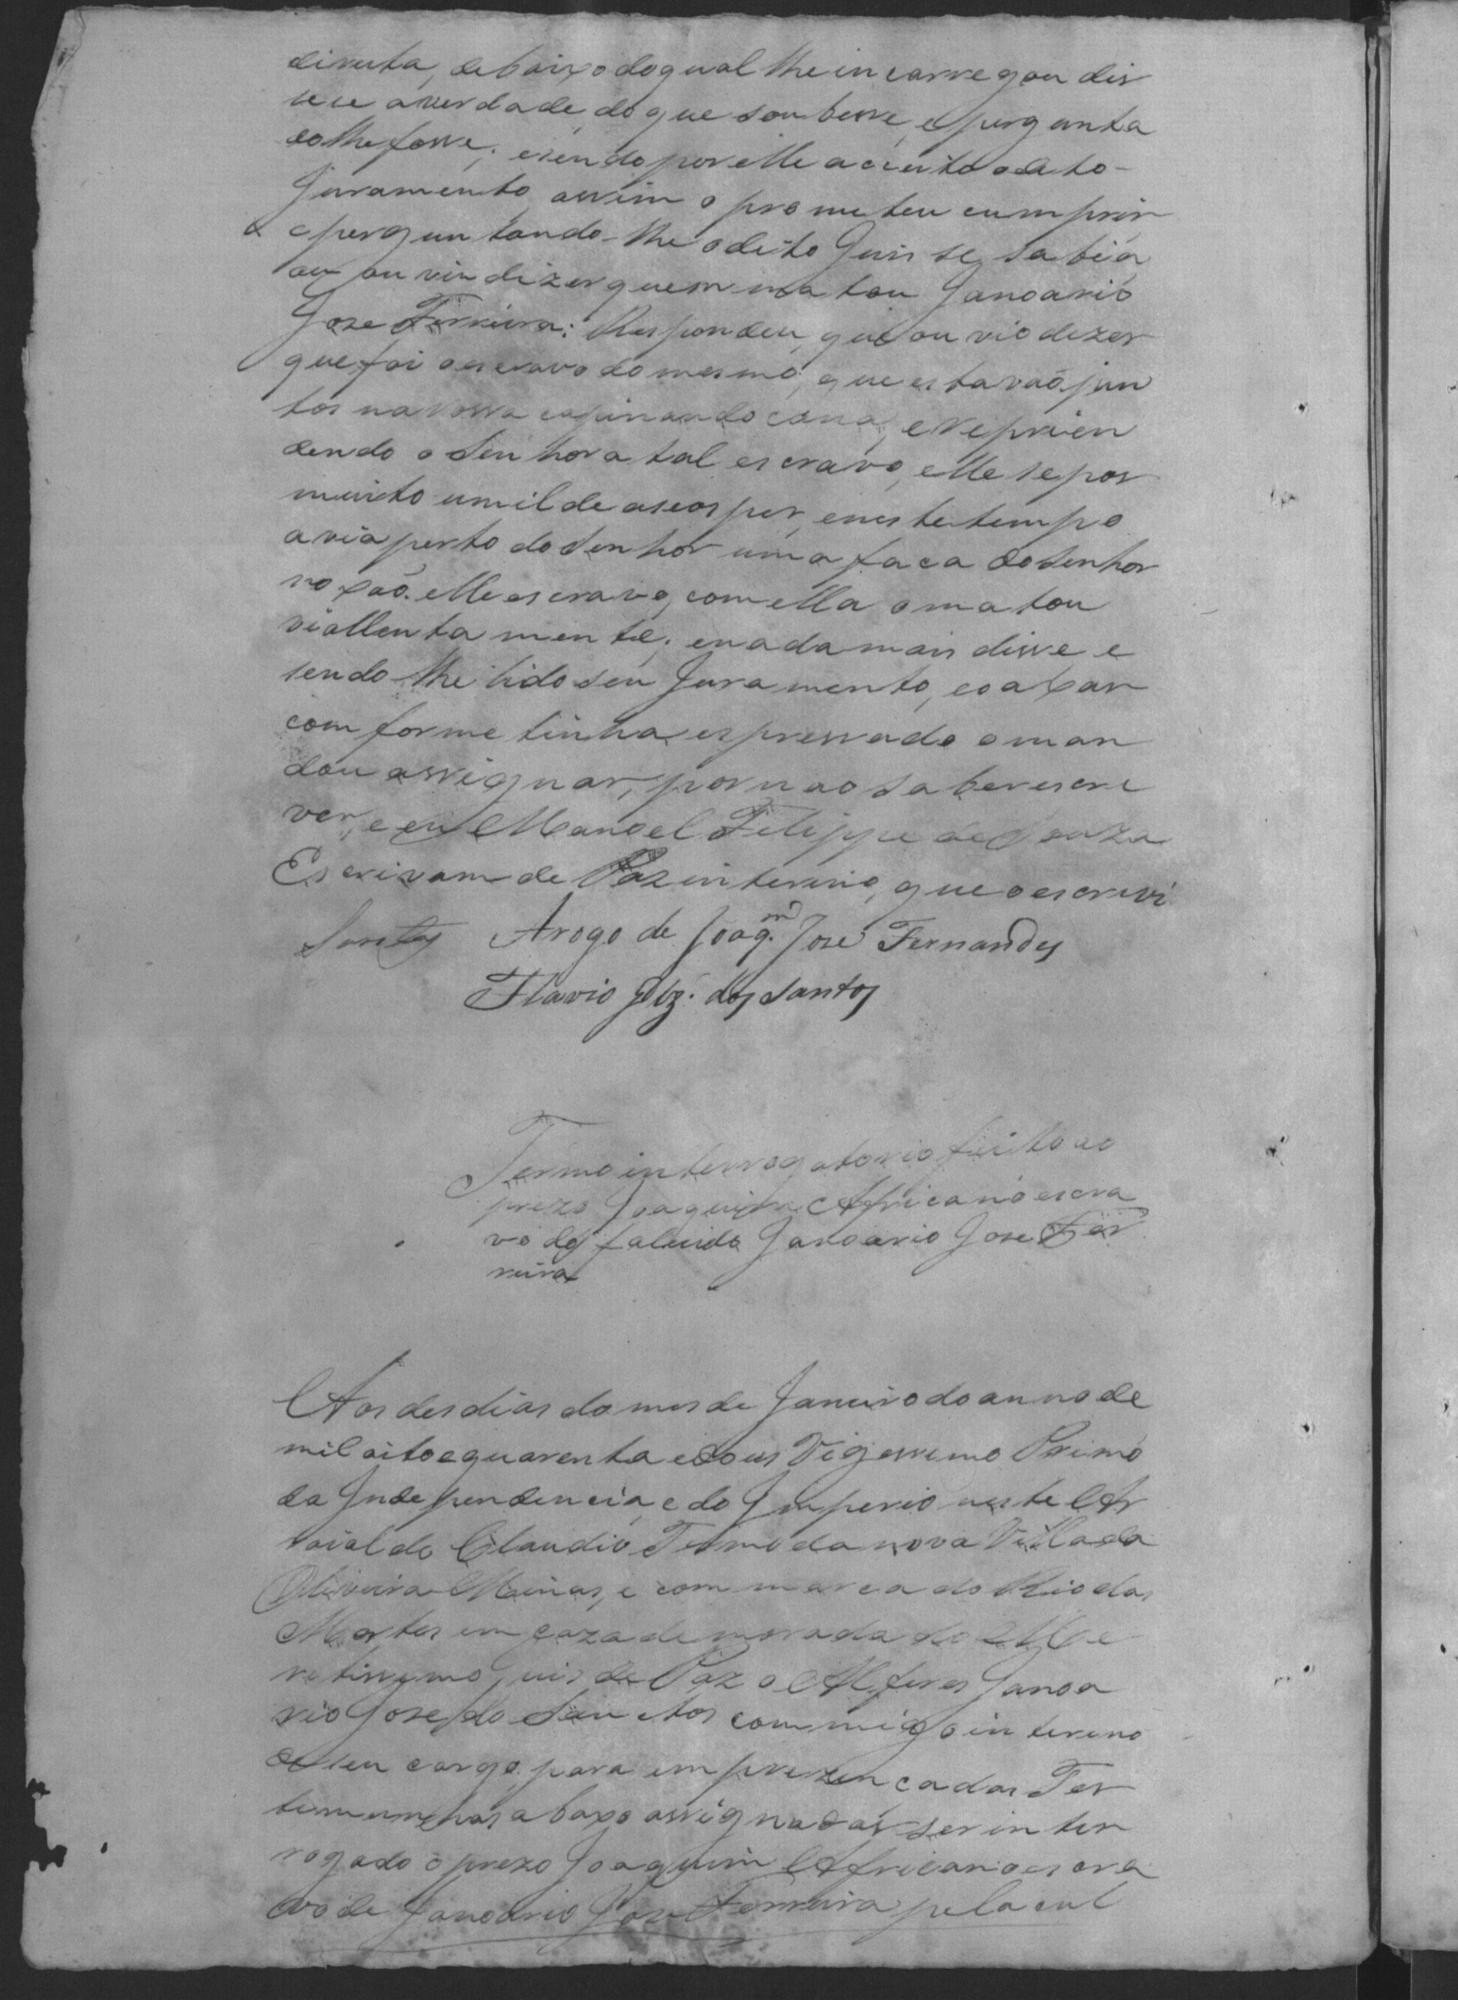 direita, debaixo do qual lhe incarregou dis
sese a verdade do que soubesse, e pergunta
do lhe fosse; e sendo por elle aceito o dito
juramento, assim o prometeu cumprir
e perguntando-lhe o dito Juis se sabia
ou ouviu dizer quem matou Janoario
Joze Ferreira: Respondeu, que ouvio dizer
que foi o escravo do mesmo, que estavaõ jun
tos na rossa capinando cana, e reprien
dendo o Senhor a tal escravo, elle se pos
muito umilde a seos pes, e neste tempo
avia perto do Senhor uma faca do senhor
no xaõ. elle escravo, com ella o matou
viollentamente; e nada mais disse, e
sendo-lhe lido seu Juramento, eo axar
comforme tinha espressado o man
dou assignar, por nao saber escre
ver, e eu Manoel Felippe de Souza
Escrivam de Paz interino, que o escrevi
Santos Arogo de Joaq.m Jose Fernandes
Flavio Glz. dos Santos
Termo interrogatorio feito ao
prezo Joaquim Africano escra
vo do falecido Janoario Jose Fer
reira
Aos des dias do mes de Janeiro do anno de
mil oito e quarenta e dous Vigessimo Primo
da Independencia, e do Imperio neste Ar
raial do Claudio Termo da nova Villa da
Oliveira Minas, e commarca do Rio das
Mortes em caza de morada do Me
retissimo Juis de Paz o Alferes Janoa
rio Jose do Sanctos commigo intereno
de seu cargo, para em prezença das Tes
temunhas abaxo assignadas ser inter
rogado o prezo Joaquim Africano escra
vo de Janoario Joze Ferreira pela cul